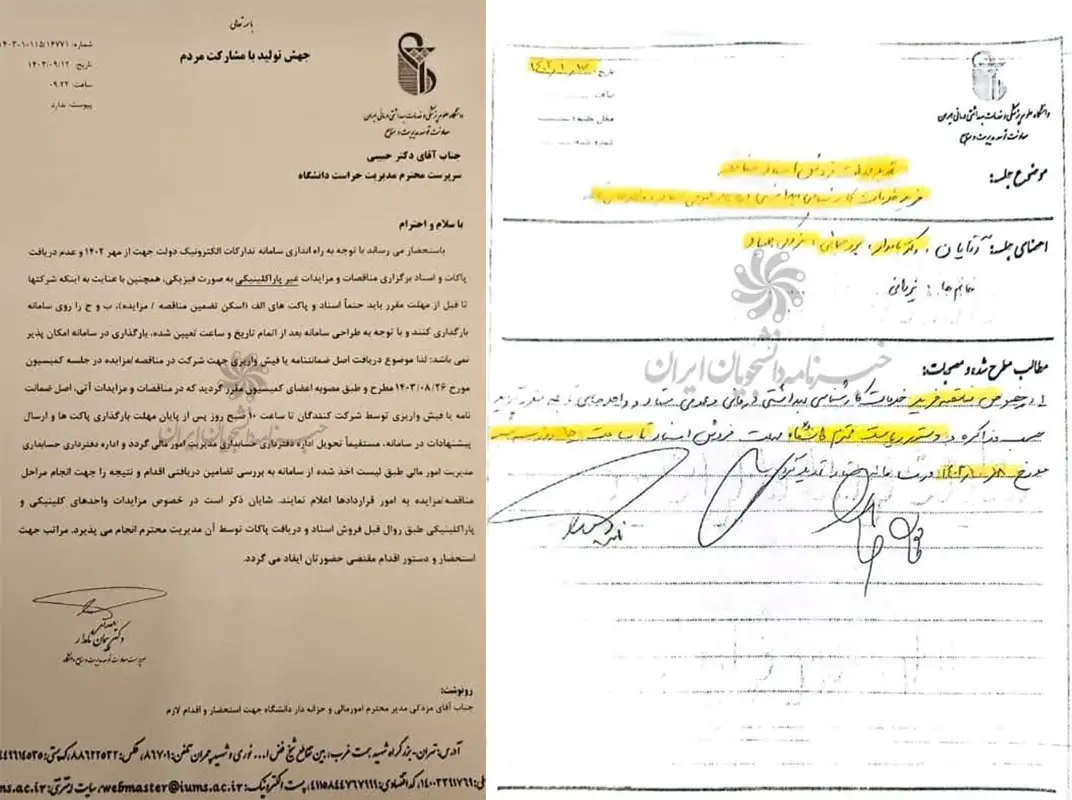 باسمه تعالی
جهش تولید با مشارکت مردم
شماره: ۱۴۰۳-۱۰۱۱۵/۱۴۷۷۱
تاریخ: ۱۴۰۳/۰۹/۱۲
ساعت: ۰۹:۲۲
پیوست: ندارد
دانشگاه علوم پزشکی و خدمات بهداشتی درمانی ایران
معاونت توسعه مدیریت و منابع
جناب آقای دکتر حبیبی
سرپرست محترم مدیریت حراست دانشگاه
با سلام و احترام
باستحضار می رساند با توجه به راه اندازی سامانه تدارکات الکترونیک دولت جهت از مهر ۱۴۰۲ و عدم دریافت
پاکات و اسناد برگزاری مناقصات و مزایدات غیر پاراکلینیکی به صورت فیزیکی، همچنین با عنایت به اینکه شرکتها
تا قبل از مهلت مقرر باید حتماً اسناد و پاکت های الف (اسکن تضمین مناقصه / مزایده)، ب و ج را روی سامانه
بارگذاری کنند و با توجه به طراحی سامانه بعد از اتمام تاریخ و ساعت تعیین شده، بارگذاری در سامانه امکان پذیر
نمی باشد؛ لذا موضوع دریافت اصل ضمانتنامه یا فیش واریزی جهت شرکت در مناقصه/مزایده در جلسه کمیسیون
مورخ ۱۴۰۳/۰۸/۲۶ مطرح و طبق مصوبه اعضای کمیسیون مقرر گردید که در مناقصات و مزایدات آتی، اصل ضمانت
نامه یا فیش واریزی توسط شرکت کنندگان تا ساعت ۱۰ صبح روز پس از پایان مهلت بارگذاری پاکت ها و ارسال
پیشنهادات در سامانه، مستقیماً تحویل اداره دفترداری حسابداری مدیریت امور مالی گردد و اداره دفترداری حسابداری
مدیریت امور مالی طبق لیست اخذ شده از سامانه به بررسی تضامین دریافتی اقدام و نتیجه را جهت انجام مراحل
مناقصه/مزایده به امور قراردادها اعلام نمایند. شایان ذکر است در خصوص مزایدات واحدهای کلینیکی و
پاراکلینیکی طبق روال قبل فروش اسناد و دریافت پاکات توسط آن مدیریت محترم انجام می پذیرد. مراتب جهت
استحضار و دستور اقدام مقتضی حضورتان ایفاد می گردد.
دکتر پیمان نامدار
سرپرست معاونت توسعه مدیریت و منابع دانشگاه
رونوشت:
جناب آقای مزدکی مدیر محترم امورمالی و خزانه دار دانشگاه جهت استحضار و اقدام لازم
آدرس: تهران- بزرگراه شهید همت غرب، بین تقاطع شیخ فضل ا... نوری و شهید چمران تلفن: ۸۶۷۰۱، فکس: ۸۸۶۲۲۵۳۲، کدپستی:
کد اقتصادی: پست الکترونیک: webmaster@iums.ac.ir، سایت اینترنتی:
دانشگاه علوم پزشکی و خدمات بهداشتی درمانی ایران
معاونت توسعه مدیریت و منابع
تاریخ:
ساعت:
محل جلسه:
شماره جلسه:
موضوع جلسه: تمدید مهلت فروش اسناد مناقصه
خرید خدمات کارشناسی بهداشتی
اعضای جلسه: آقایان: دکتر نامدار،
خانم ها:
خبرنامه دانشجویان ایران
مطالب مطرح شده و مصوبات:
۱- در خصوص مناقصه خرید خدمات کارشناسی بهداشتی درمانی و عمومی ستاد و واحدهای تابعه
حسب مذاکره و دستور ریاست محترم دانشگاه مهلت فروش اسناد تا ساعت
مورخ